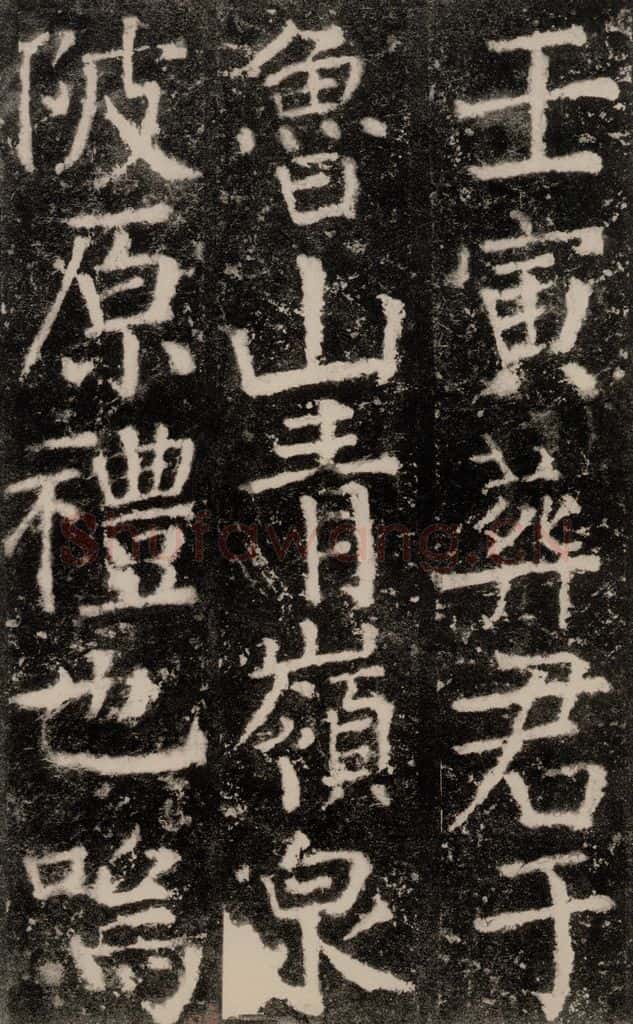 壬寅葬君于
魯山青嶺泉
陂原禮也嗚
Shufawang.cn